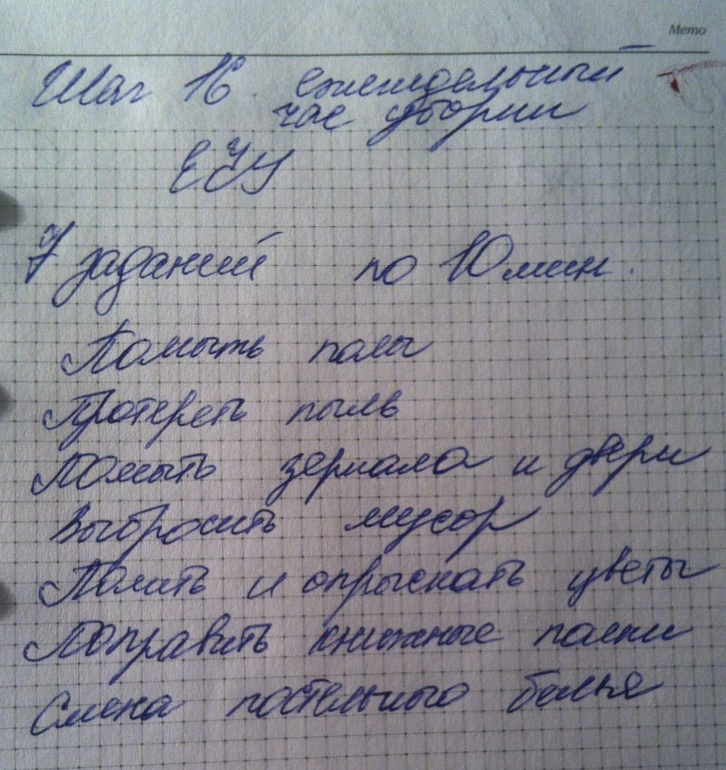 Memo
Шаг 16. еженедельный
час уборки
ЕЧУ
7 заданий по 10 мин.
Помыть полы
Протереть пыль
Помыть зеркала и двери
Выбросить мусор
Полить и опрыскать цветы
Поправить книжные полки
Смена постельного белья